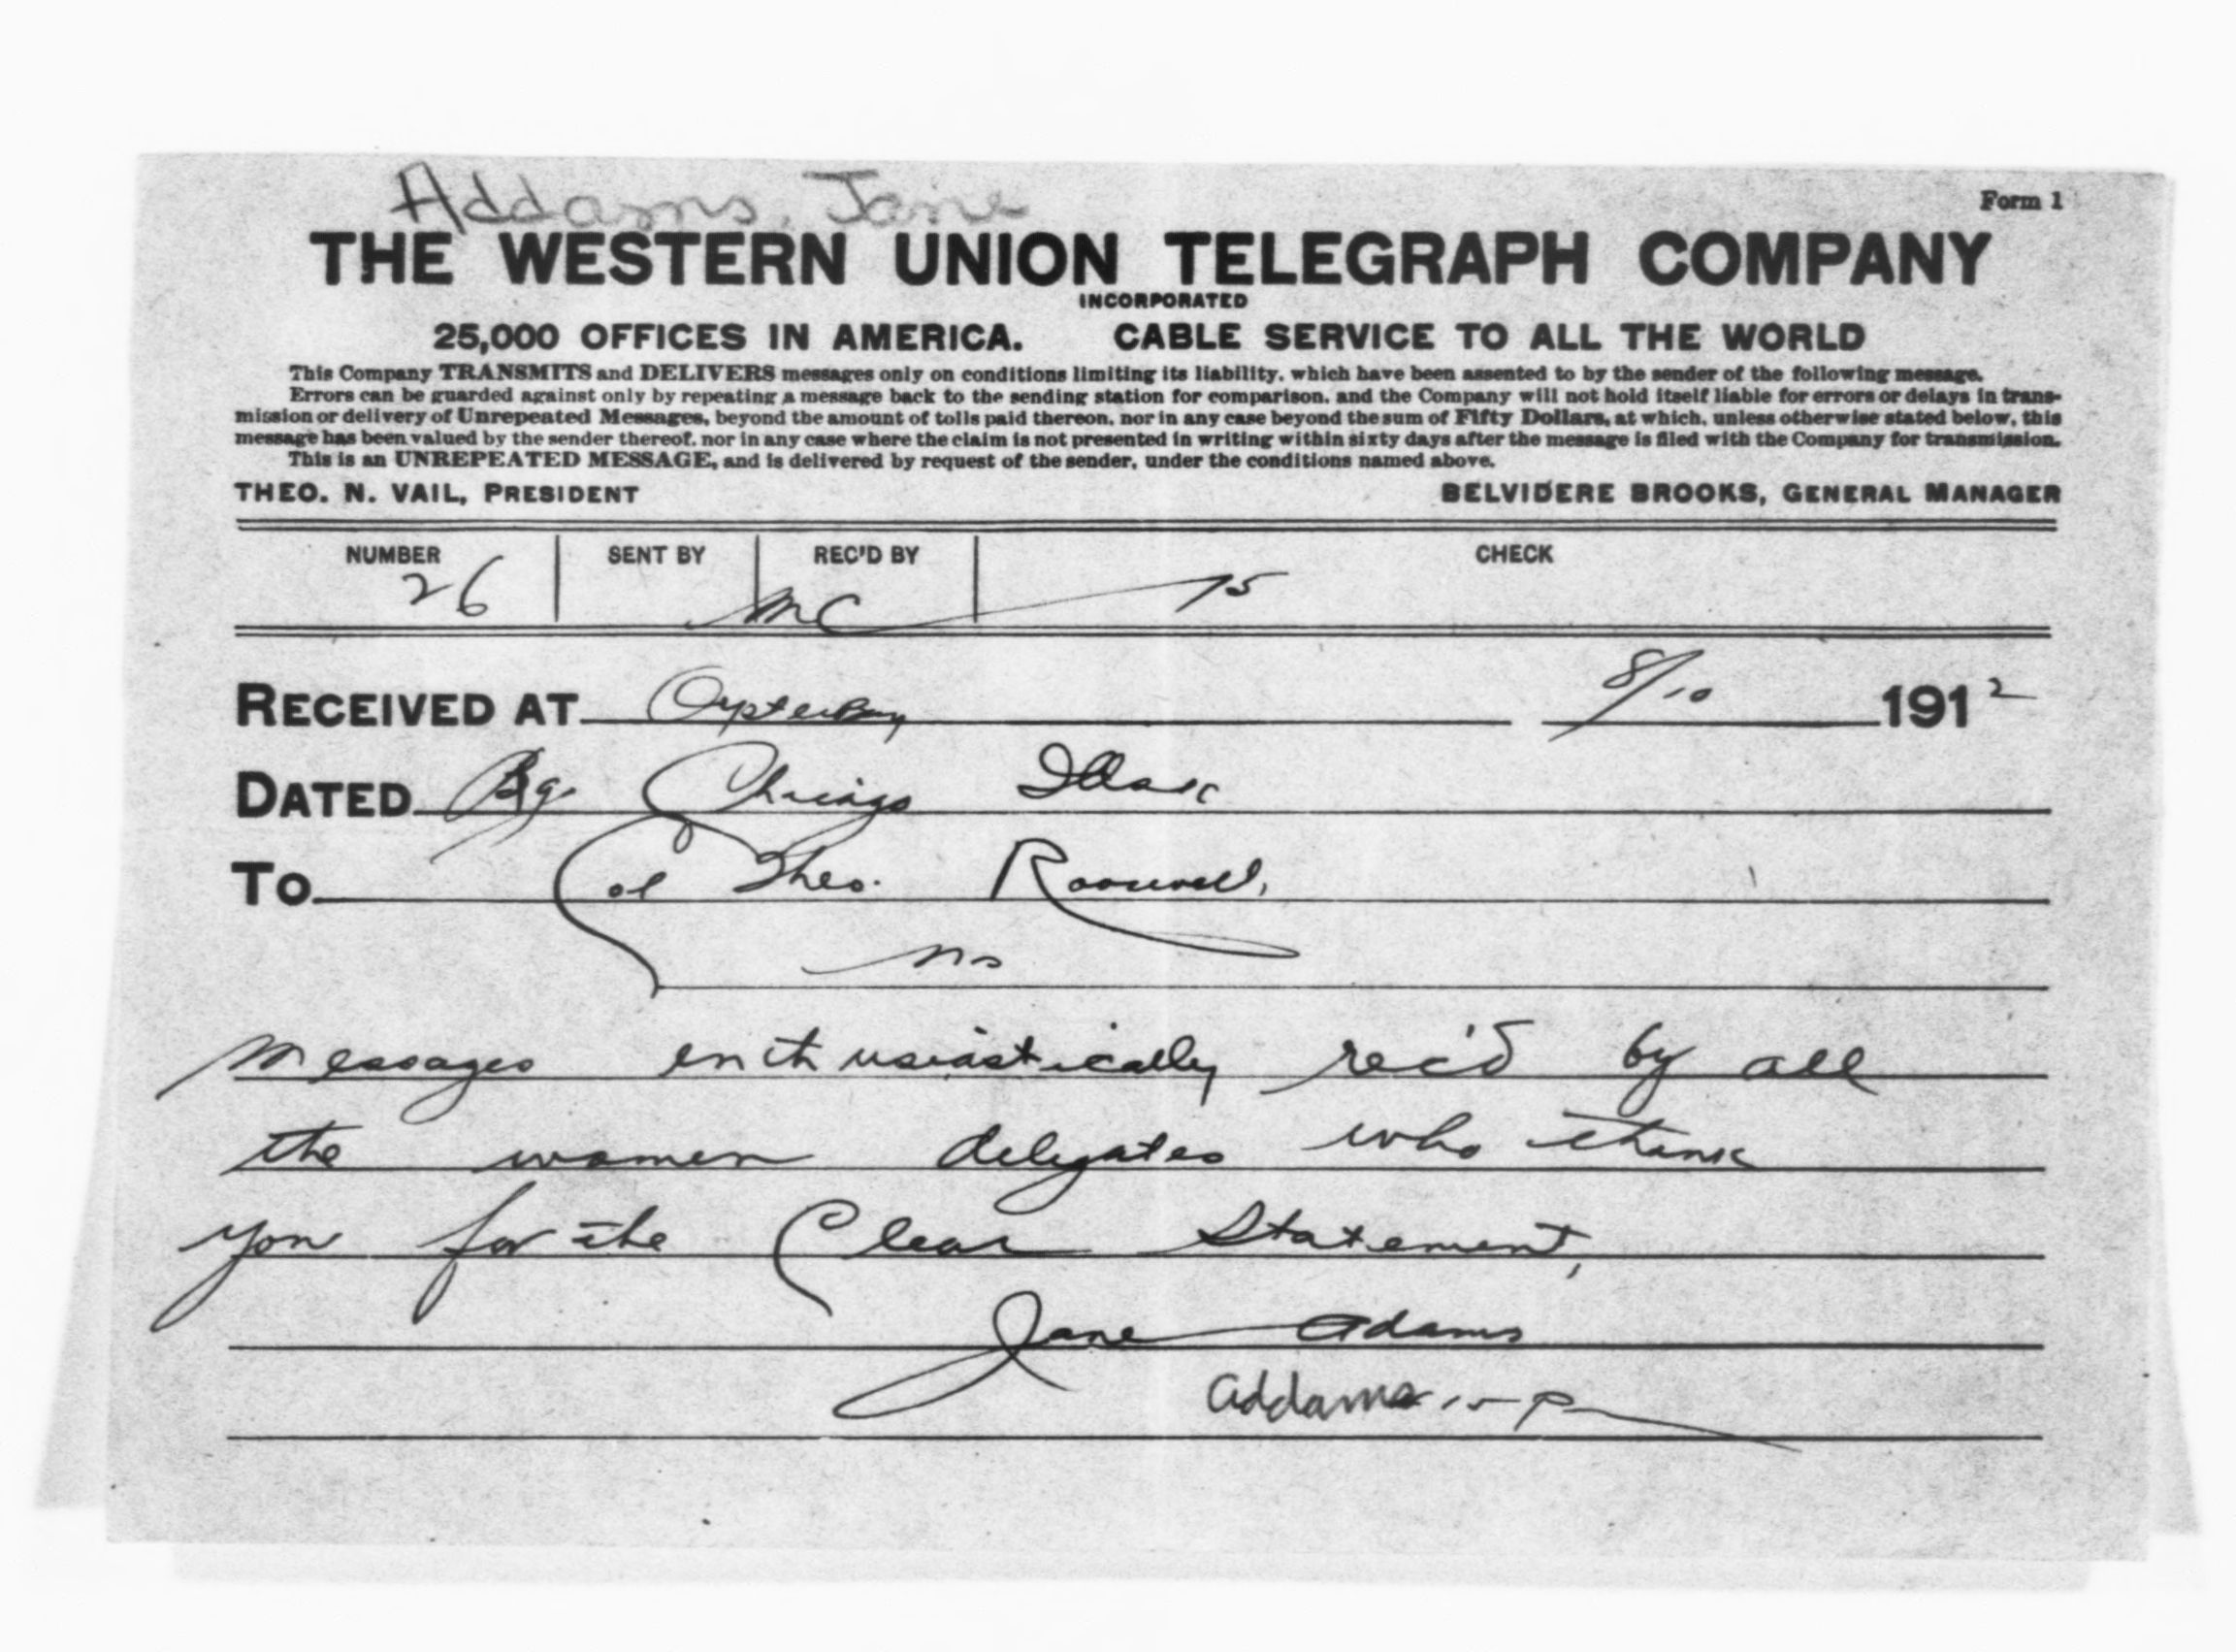 Addams, Jane
Form 1
THE WESTERN UNION TELEGRAPH COMPANY
INCORPORATED
25,000 OFFICES IN AMERICA. CABLE SERVICE TO ALL THE WORLD
This Company TRANSMITS and DELIVERS messages only on conditions limiting its liability, which have been assented to by the sender of the following message.
Errors can be guarded against only by repeating a message back to the sending station for comparison, and the Company will not hold itself liable for errors or delays in trans-
mission or delivery of Unrepeated Messages, beyond the amount of tolls paid thereon, nor in any case beyond the sum of Fifty Dollars, at which, unless otherwise stated below, this
message has been valued by the sender thereof, nor in any case where the claim is not presented in writing within sixty days after the message is filed with the Company for transmission.
This is an UNREPEATED MESSAGE, and is delivered by request of the sender, under the conditions named above.
THEO. N. VAIL, PRESIDENT BELVIDERE BROOKS, GENERAL MANAGER
NUMBER SENT BY REC'D BY CHECK
26 MC 15
RECEIVED AT Oysterbay 8/10 1912
DATED Chicago
TO Col Theo. Roosevelt,
messages enthusiastically rec'd by all
the women delegates who thank
you for the Clear Statement,
Jane Adams
Addams